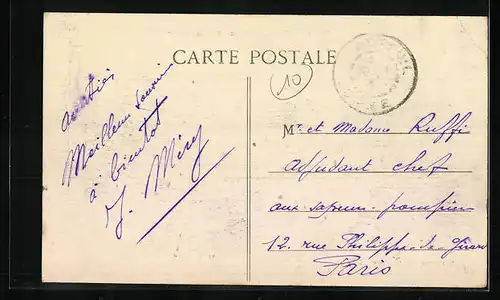 CARTE POSTALE
10
Amitiés
Meilleur Souvenir
à bientôt
J. Méry
Mr. et Madame Ruffi
adjudant chef
aux sapeurs pompiers
12. rue Philippe-de-Girard
Paris